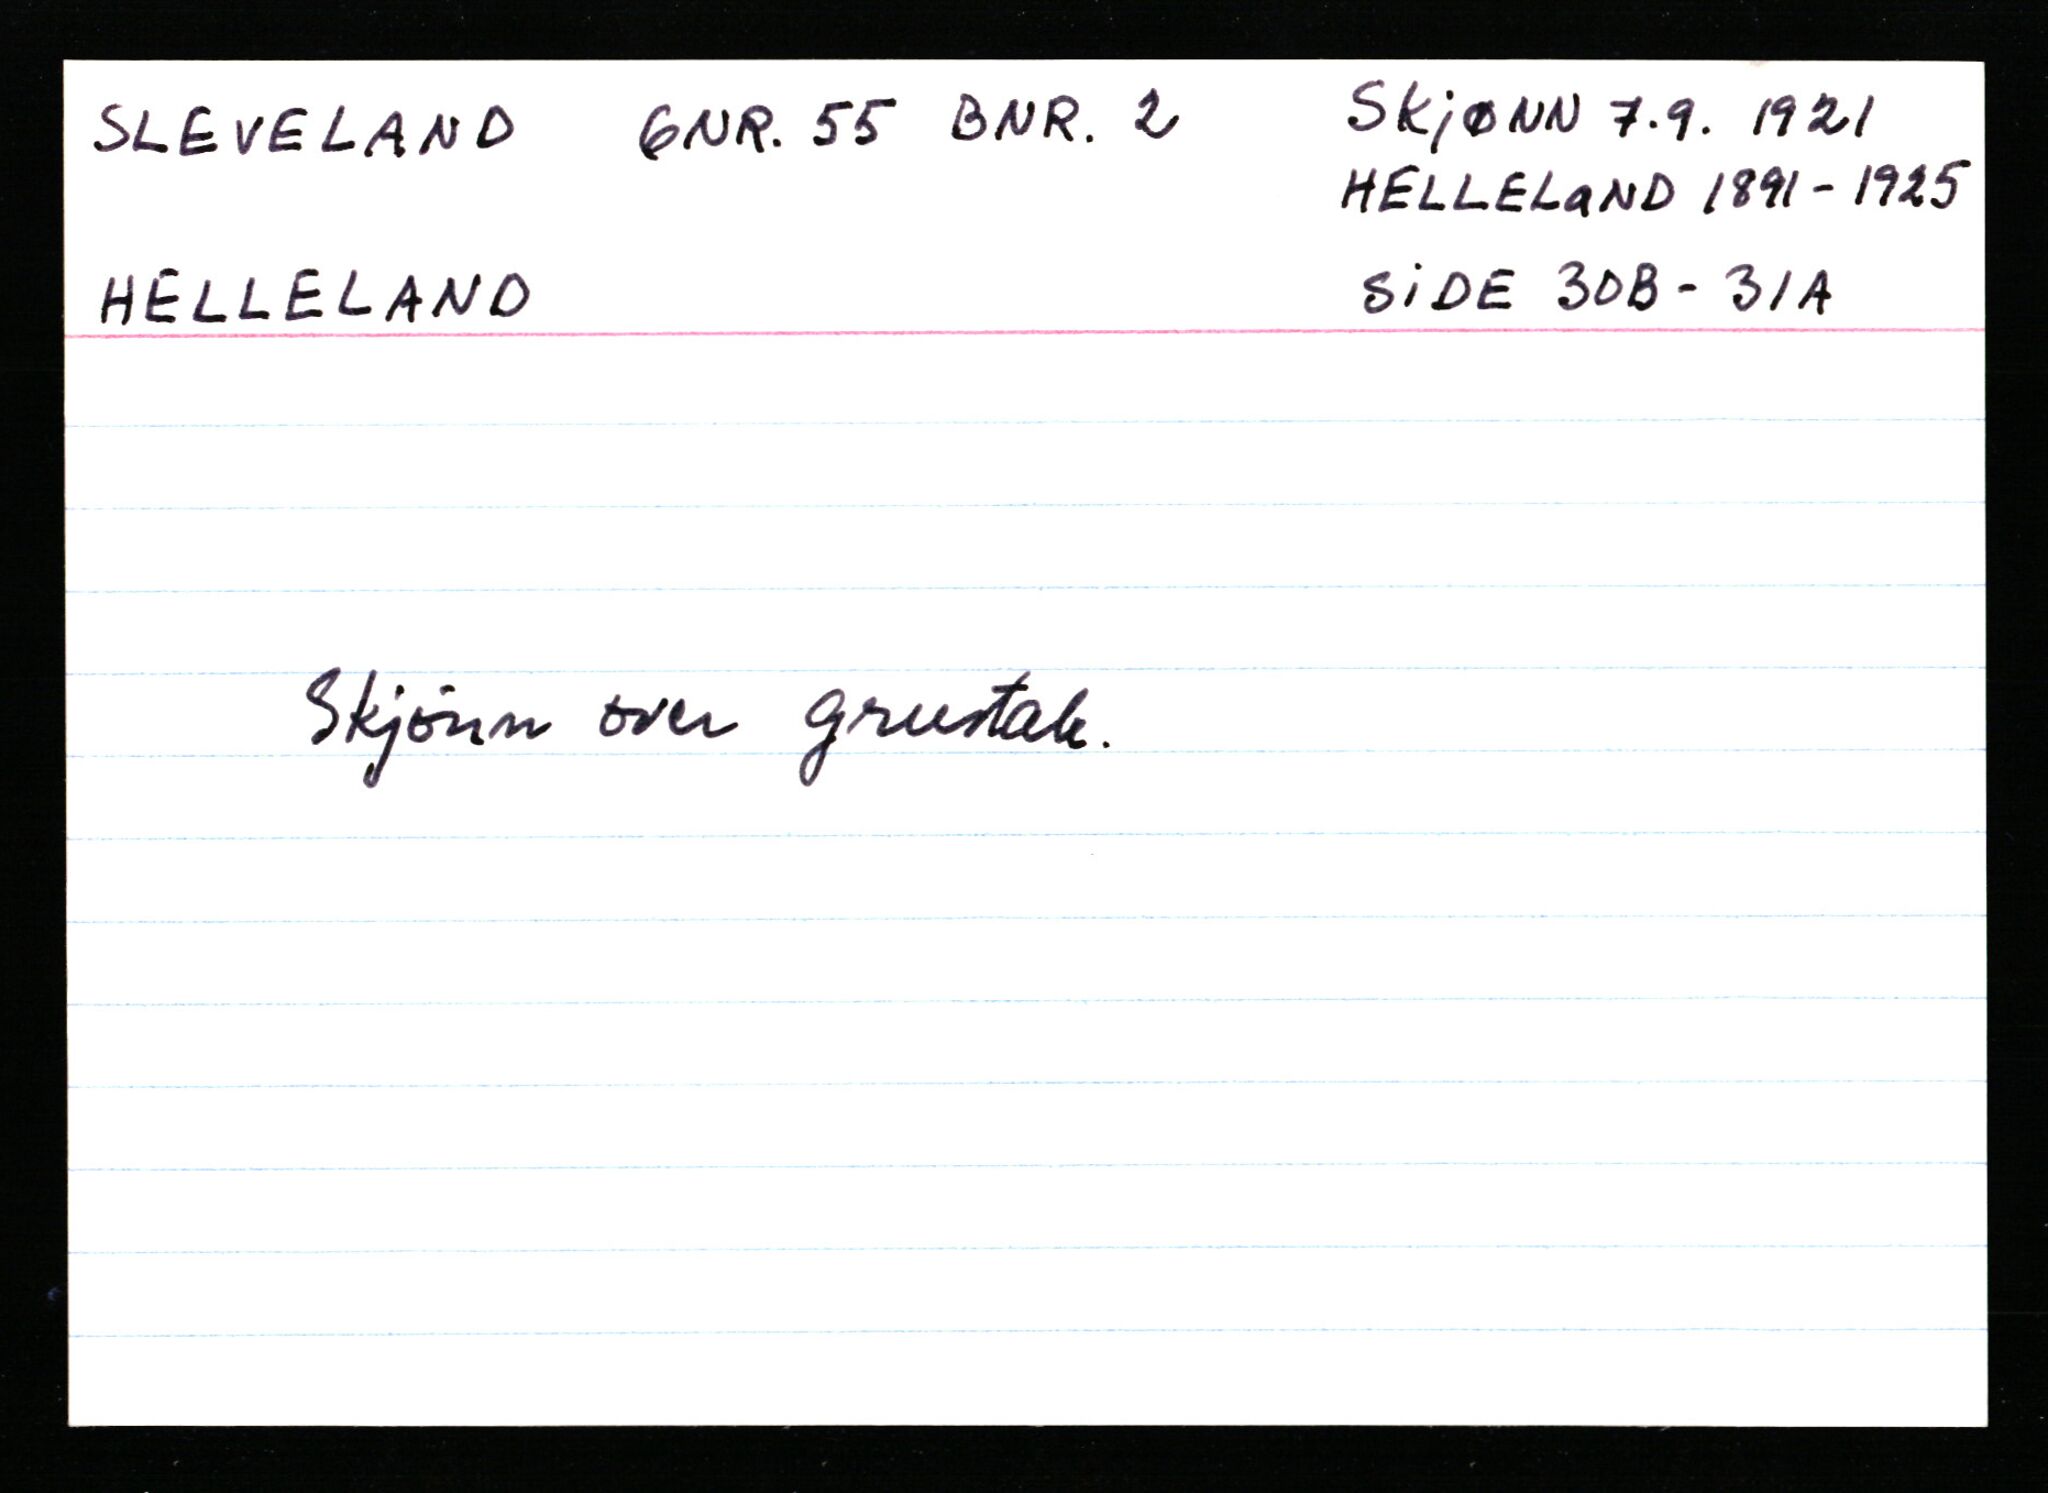 SLEVELAND GNR. 55 BNR. 2 SKjØNN 7.9. 1921
HELLELaND 1891-1925
HELLELAND SiDE 30B-31A
Skjönn over grustak.